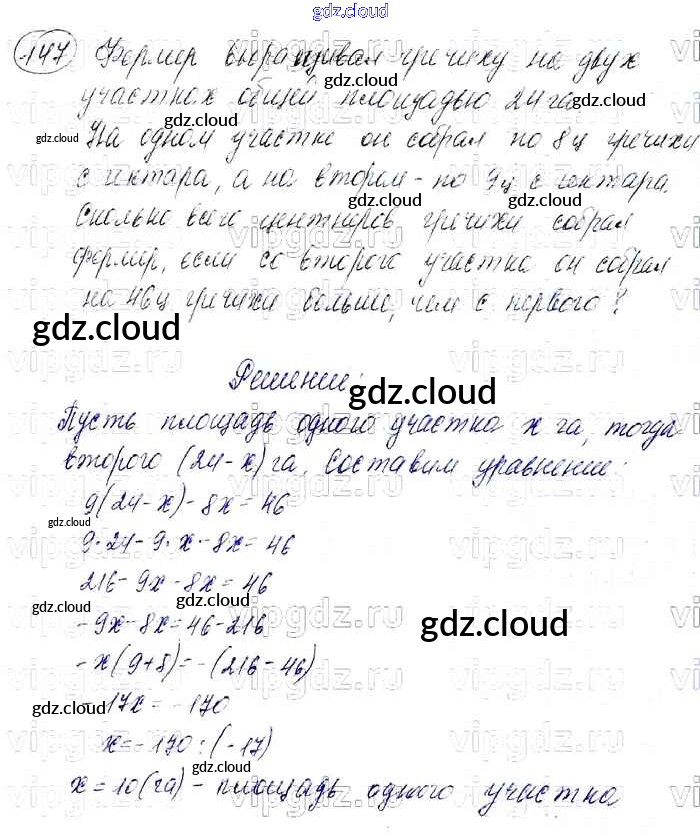 gdz.cloud
147 Фермер выращивал гречиху на двух
gdz.cloud
участках общей площадью 24 га.
gdz.cloud gdz.cloud
На одном участке он собрал по 8ц гречихи
с гектара, а на втором - по 9ц с гектара.
gdz.cloud gdz.cloud
Сколько всего центнеров гречихи собрал
фермер, если со второго участка он собрал
на 46ц гречихи больше, чем с первого?
gdz.cloud
Решение:
gdz.cloud
Пусть площадь одного участка x га, тогда
второго (24-x) га. Составим уравнение:
9(24-x)-8x=46
gdz.cloud
9·24-9·x-8x=46
216-9x-8x=46
gdz.cloud gdz.cloud
-9x-8x=46-216
gdz.cloud
-x(9+8)=-(216-46)
-17x=-170
gdz.cloud
x=-170:(-17)
gdz.cloud
x=10(га)-площадь одного участка
vipgdz.ru